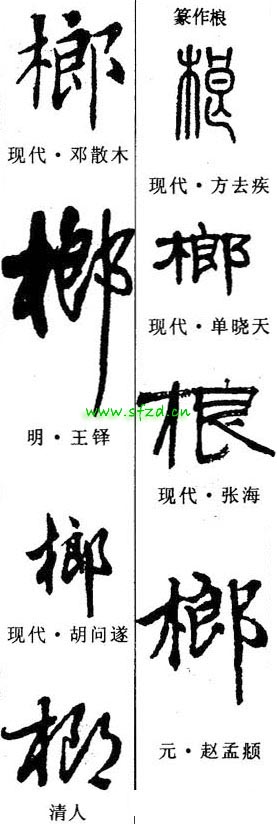 榔
现代·邓散木
榔
明·王铎
榔
现代·胡问遂
榔
清人
篆作桹
桹
现代·方去疾
榔
现代·单晓天
桹
现代·张海
榔
元·赵孟頫
www.sfzd.cn